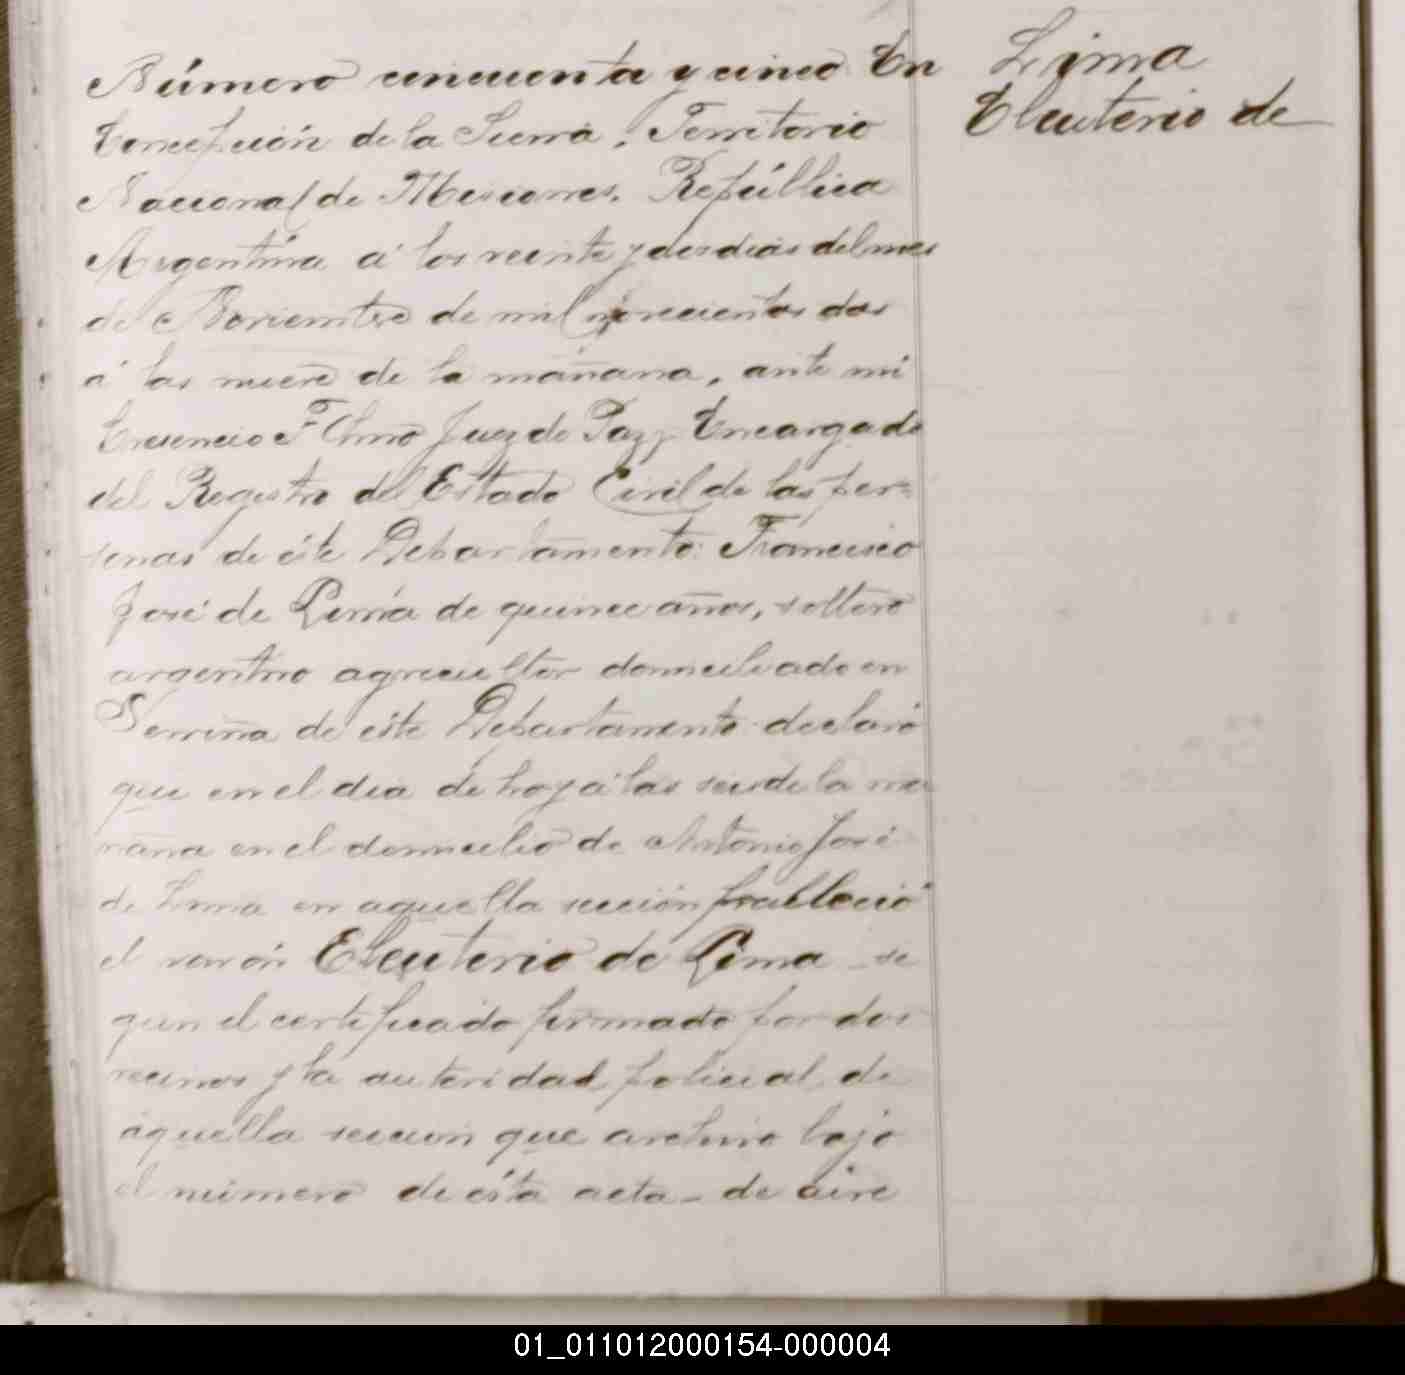 Número cincuenta y cinco En
Concepción de la Sierra, Territorio
Nacional de Misiones. República
Argentina á los veinte y dos dias del mes
de Noviembre de mil novecientos dos
á las nueve de la mañana, ante mi
Cresencio F. Juez de Paz y Encargado
del Registro del Estado Civil de las per-
sonas de éste Departamento: Francisco
José de Lima de quince años, soltero
argentino agricultor domiciliado en
de éste Departamento declaró
que en el dia de hoy á las seis de la ma
ñana en el domicilio de Antonio José
de Lima en aquella sección falleció
el varón Eleuterio de Lima - se
gun el certificado firmado por dos
vecinos y la autoridad policial de
aquella seccion que archivo bajo
el número de ésta acta - de
Lima
Eleuterio de
01_011012000154-000004